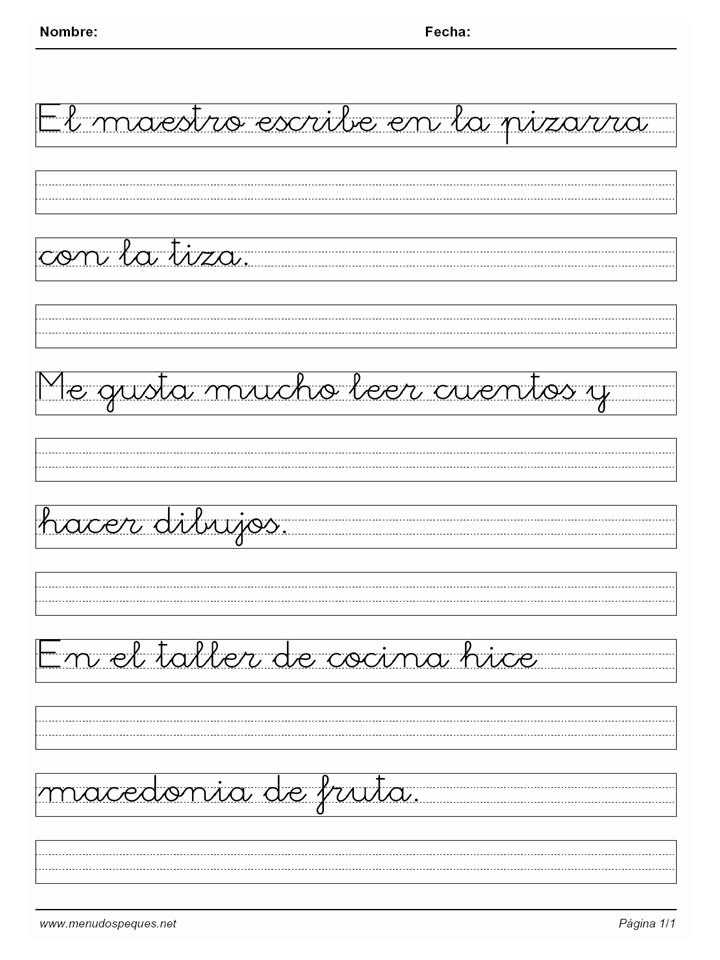 Nombre: Fecha:
El maestro escribe en la pizarra
con la tiza.
Me gusta mucho leer cuentos y
hacer dibujos.
En el taller de cocina hice
macedonia de fruta.
www.menudospeques.net Página 1/1